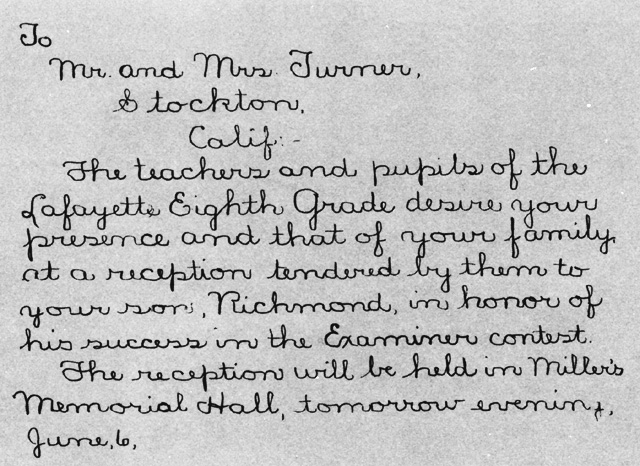 To
Mr. and Mrs. Turner,
Stockton,
Calif. -
The teachers and pupils of the
Lafayette Eighth Grade desire your
presence and that of your family,
at a reception tendered by them to
your son, Richmond, in honor of
his success in the Examiner contest.
The reception will be held in Miller's
Memorial Hall, tomorrow evening,
June, 6,